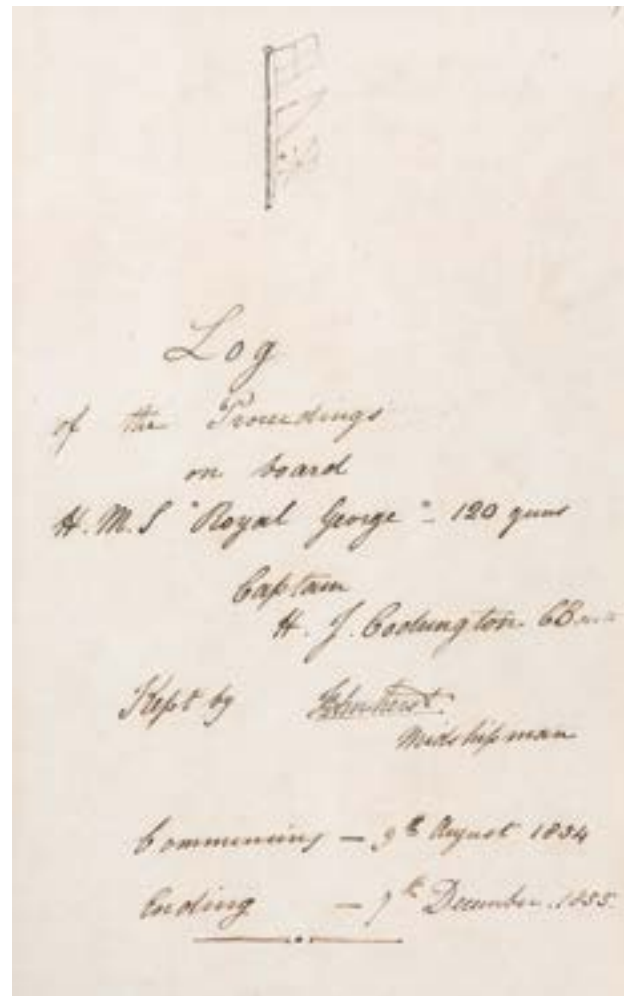 Log
of the Proceedings
on board
H.M.S "Royal George" - 120 guns
Captain
H. J. Codrington CB
Kept by
Midshipman
Commencing — 9th August 1854
Ending — 7th December 1855